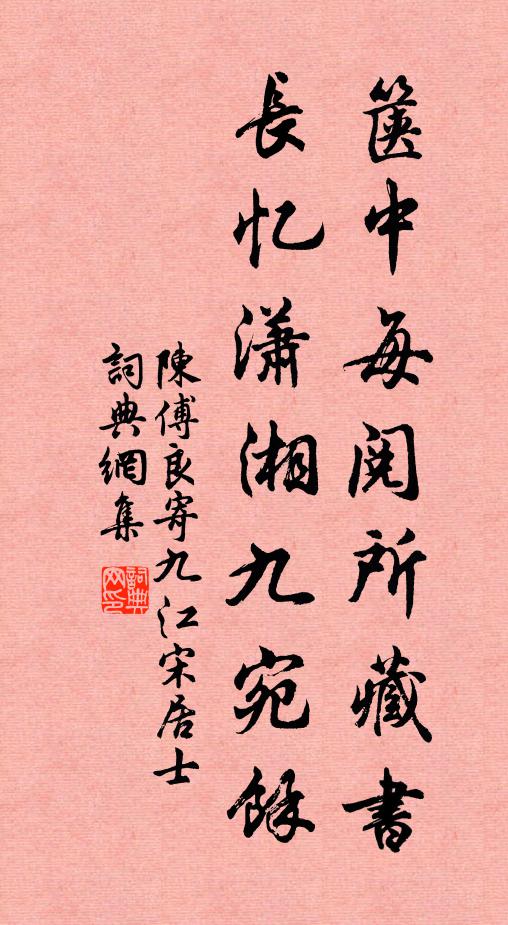 篋中每閱所藏書
長忆瀟湘九宛餘
陳傅良寄九江宋居士
詞典網集
詞典网印